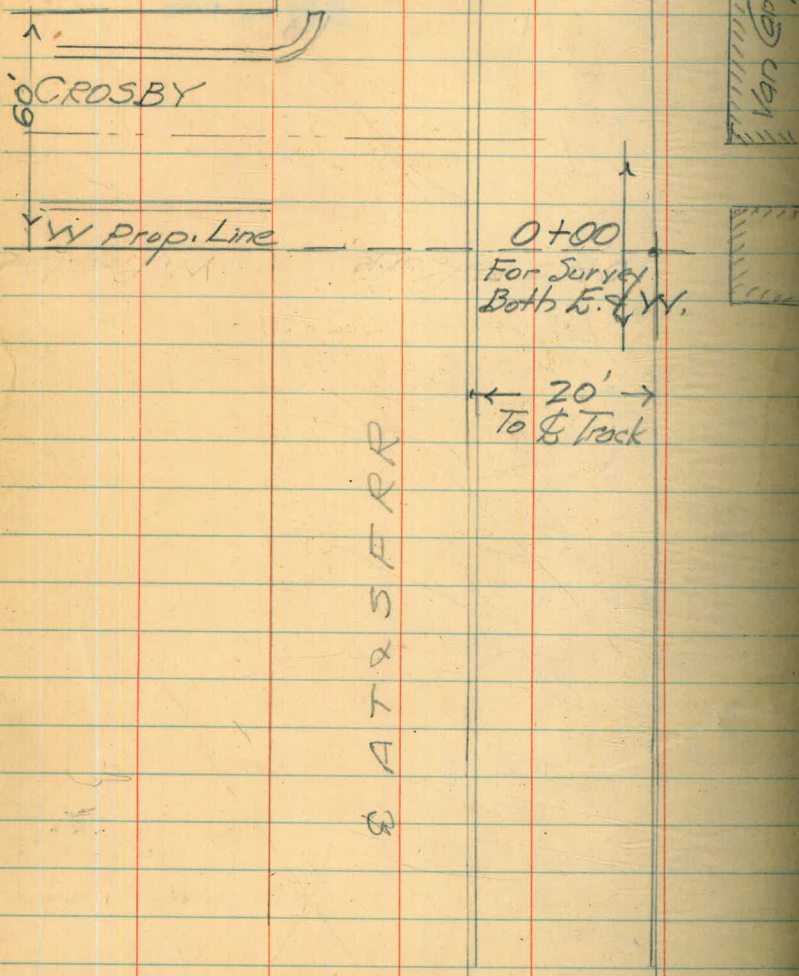 60'
CROSBY
W Prop. Line
0+00
For Survey
Both E. & W.
20'
To ℄ Track
℄ A T & S F R R
Van